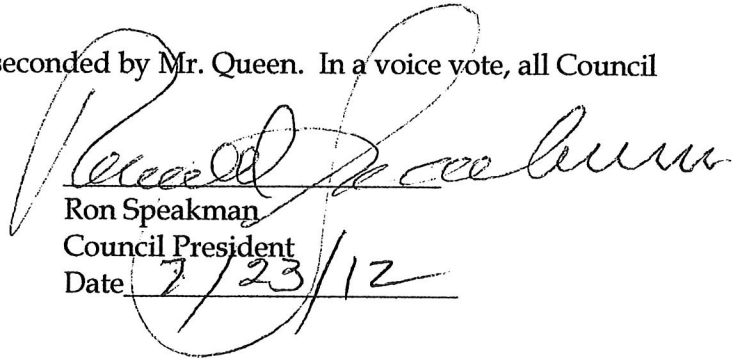 seconded by Mr. Queen. In a voice vote, all Council
Ronald Speakman
Ron Speakman
Council President
Date 7/23/12